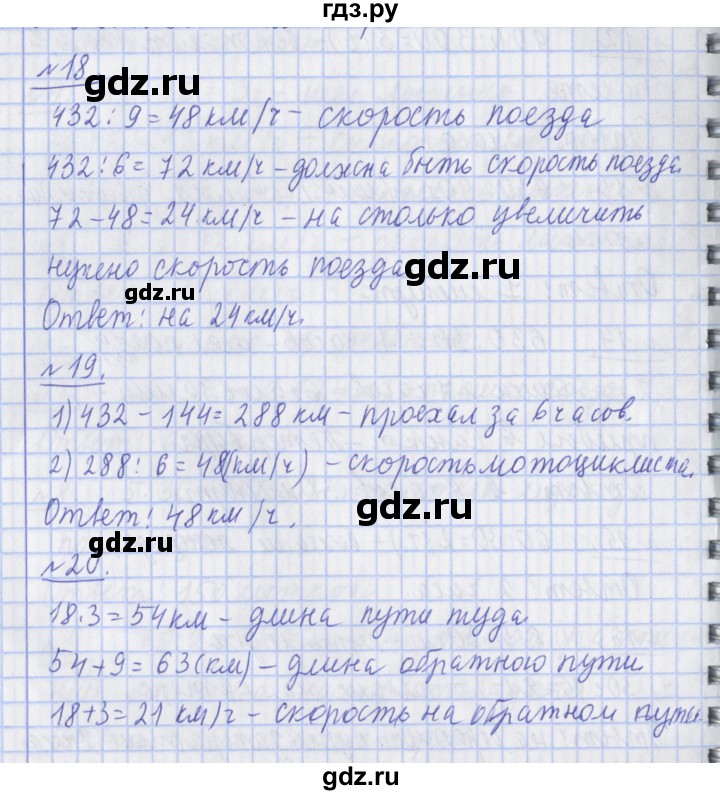 гдз.ру
№18
432 : 9 = 48 км/ч - скорость поезда
432 : 6 = 72 км/ч - должна быть скорость поезда.
72 - 48 = 24 км/ч - на столько увеличить
нужно скорость поезда
Ответ: на 24 км/ч.
№19.
1) 432 - 144 = 288 км - проехал за 6 часов.
2) 288 : 6 = 48 (км/ч) - скорость мотоциклиста.
Ответ: 48 км/ч.
№20.
18·3 = 54 км - длина пути туда
54 + 9 = 63 (км) - длина обратного пути
18 + 3 = 21 км/ч - скорость на обратном пути
gdz.ru
gdz.ru
gdz.ru
gdz.ru
gdz.ru